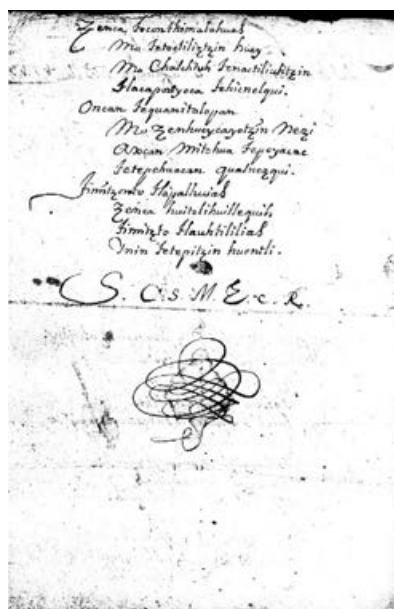 Zenca Toconthimalahuas
Mo Tetoctiliztzin huey
Mo Chalchiuh Tenactiliuhtzin
Tlacapatyoca Tehicnelqui.
Oncan Tequamitalopan
Mo Zenhueycayotzin Nezi
Axcan Mitchua Tepeyacac
Tetepehuacan qualnezqui.
Timitzonto Tlapalhuias
Zenca huitzlihuillequih
Timitzto Tlauhtililias
Ynin Tetepitzin huentli.
S. C. S. M. E. C. R.